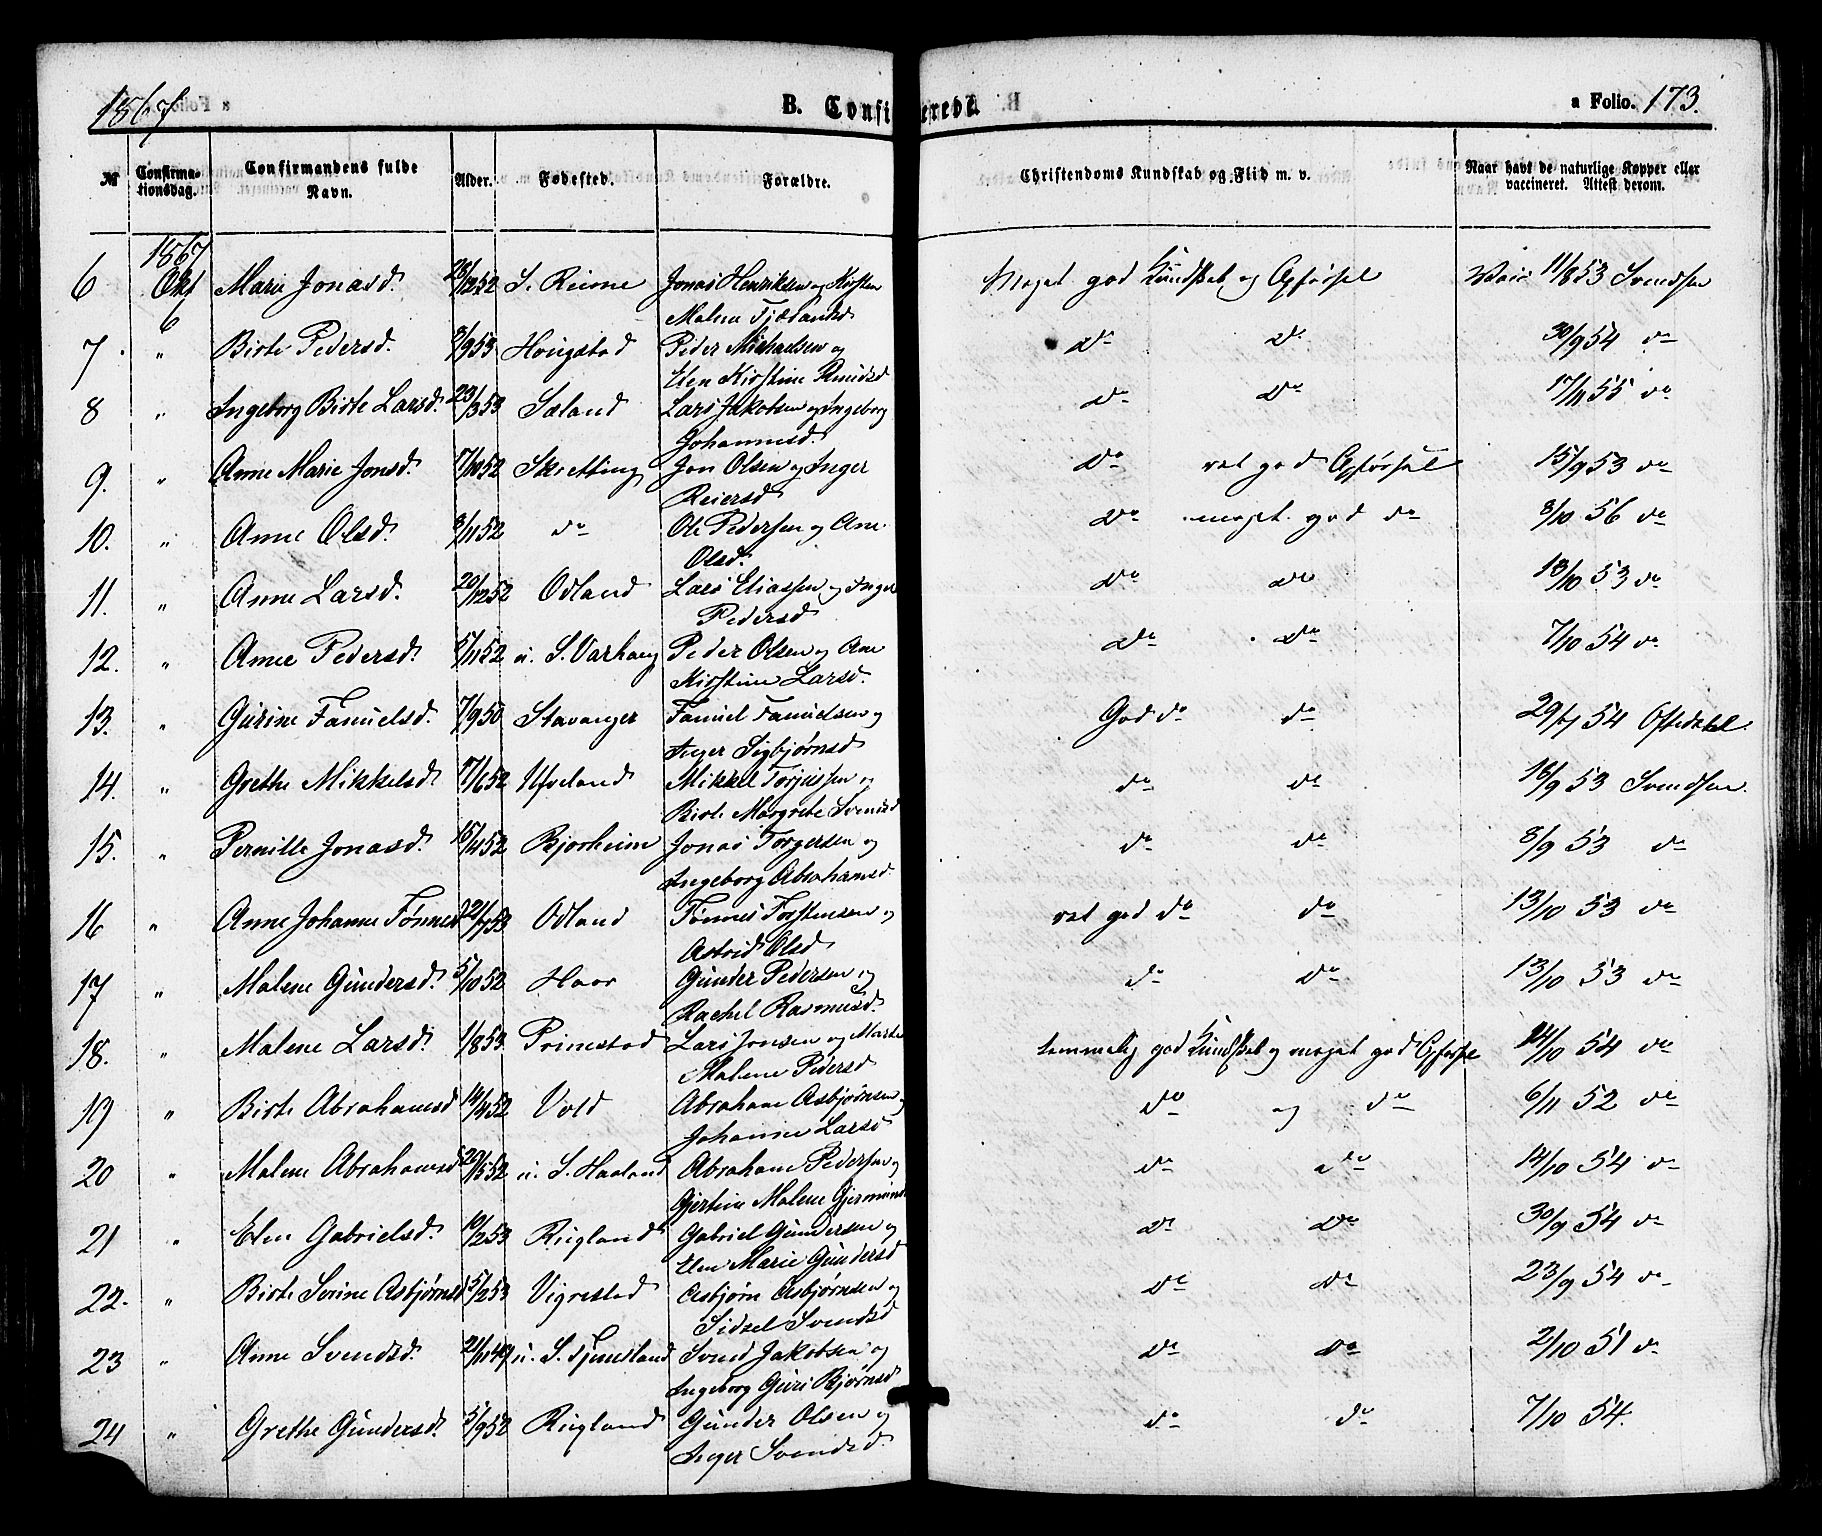 1867
B. Confirmerede.
a Folio. 173.
№ Confirmationsdag. Confirmandens fulde Navn. Alder. Fødested. Forældre. Christendoms Kundskab og Flid m. v. Naar havt de naturlige Kopper eller vaccineret. Attest derom.
1867
6 Okt Marie Jonasd. 28/12 52 S. Reime Jonas Henriksen og Kirsten Meget god Kundskab og Opførsel Vacc 11/8 53 Svendsen
6 Malene Fjædlandsd
7. " Birte Pedersd. 3/9 53 Hougstad Peder Michaelsen og do do 30/9 54 do
Elen Kirstine Knudsd
8 " Ingeborg Birte Larsd. 23/3 53 Sæland Lars Jakobsen og Ingeborg do do 17/11 55 do
Johannesd.
9. " Anne Marie Jonsd. 7/10 52 Skretting Jon Olsen og Inger do ret god Opførsel 15/9 53 do
Reiersd
10. " Anne Olsd. 3/11 52 do Ole Pedersen og Ane do meget god do 3/10 56 do
Olsd.
11. " Anne Larsd. 20/12 52 Odland Lars Eliassen og Inger do do 13/10 53 do
Pedersd
12. " Anne Pedersd. 5/11 52 u. S. Varhaug Peder Olsen og Ane do do 7/10 54 do
Kirstine Larsd.
13. " Gurine Fanuelsd. 7/9 50 Stavanger Fanuel Fanuelsen og God do do 29/7 54 Oftedahl
Inger Sigbjørnsd
14. " Grethe Mikkelsd 7/6 52 Ueland Mikkel Torjussen og do do 16/9 53 Svendsen.
Birte Margrete Svendsd
15. " Pernille Jonasd. 15/11 52 Bjorheim Jonas Torgersen og do do 8/9 53 do
Ingeborg Abrahamsd.
16 " Anne Johanne Tønnesd 21/7 53 Odland Tønnes Torstensen og ret god do do 13/10 53 do
Astrid Olsd
17 " Malene Gundersd. 5/10 52 Haar Gunder Pedersen og do do 13/10 53 do
Rachel Rasmusd.
18. " Malene Larsd. 1/8 53 Primestad Lars Jonsen og Marte temmelig god Kundskab og meget god Opførsel 14/10 54 do
Malene Pedersd
19 " Birte Abrahamsd 14/4 52 Vold Abraham Asbjørnsen og do og do 6/11 52 do
Johanne Larsd
20 " Malene Abrahamsd 20/5 52 u. S. Haaland Abraham Pedersen og do do 14/10 54 do
Gjertine Malene Gjermunds
21 " Elen Gabrielsd. 10/2 53 Rugland Gabriel Gundersen og do do 30/9 54 do
Elen Marie Gundersd
22. " Birte Serine Asbjørnsd 5/2 53 Vigrestad Asbjørn Asbjørnsen og do do 23/9 54 do
Sidsel Svendsd
23 " Anne Svendsd. 21/11 49 u. S. Tjemsland Svend Jakobsen og do do 2/10 51 do
Ingeborg Guri Bjørnsd
24 " Grethe Gundersd. 5/9 52 Rugland Gunder Olsen og do do 7/10 54.
Inger Svendsd.